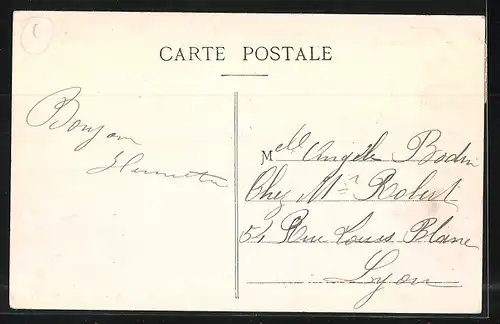 CARTE POSTALE
Bonjour
Henriette
Melle Angèle Bodin
Chez Mr Robert
51 Rue Louis Blanc
Lyon